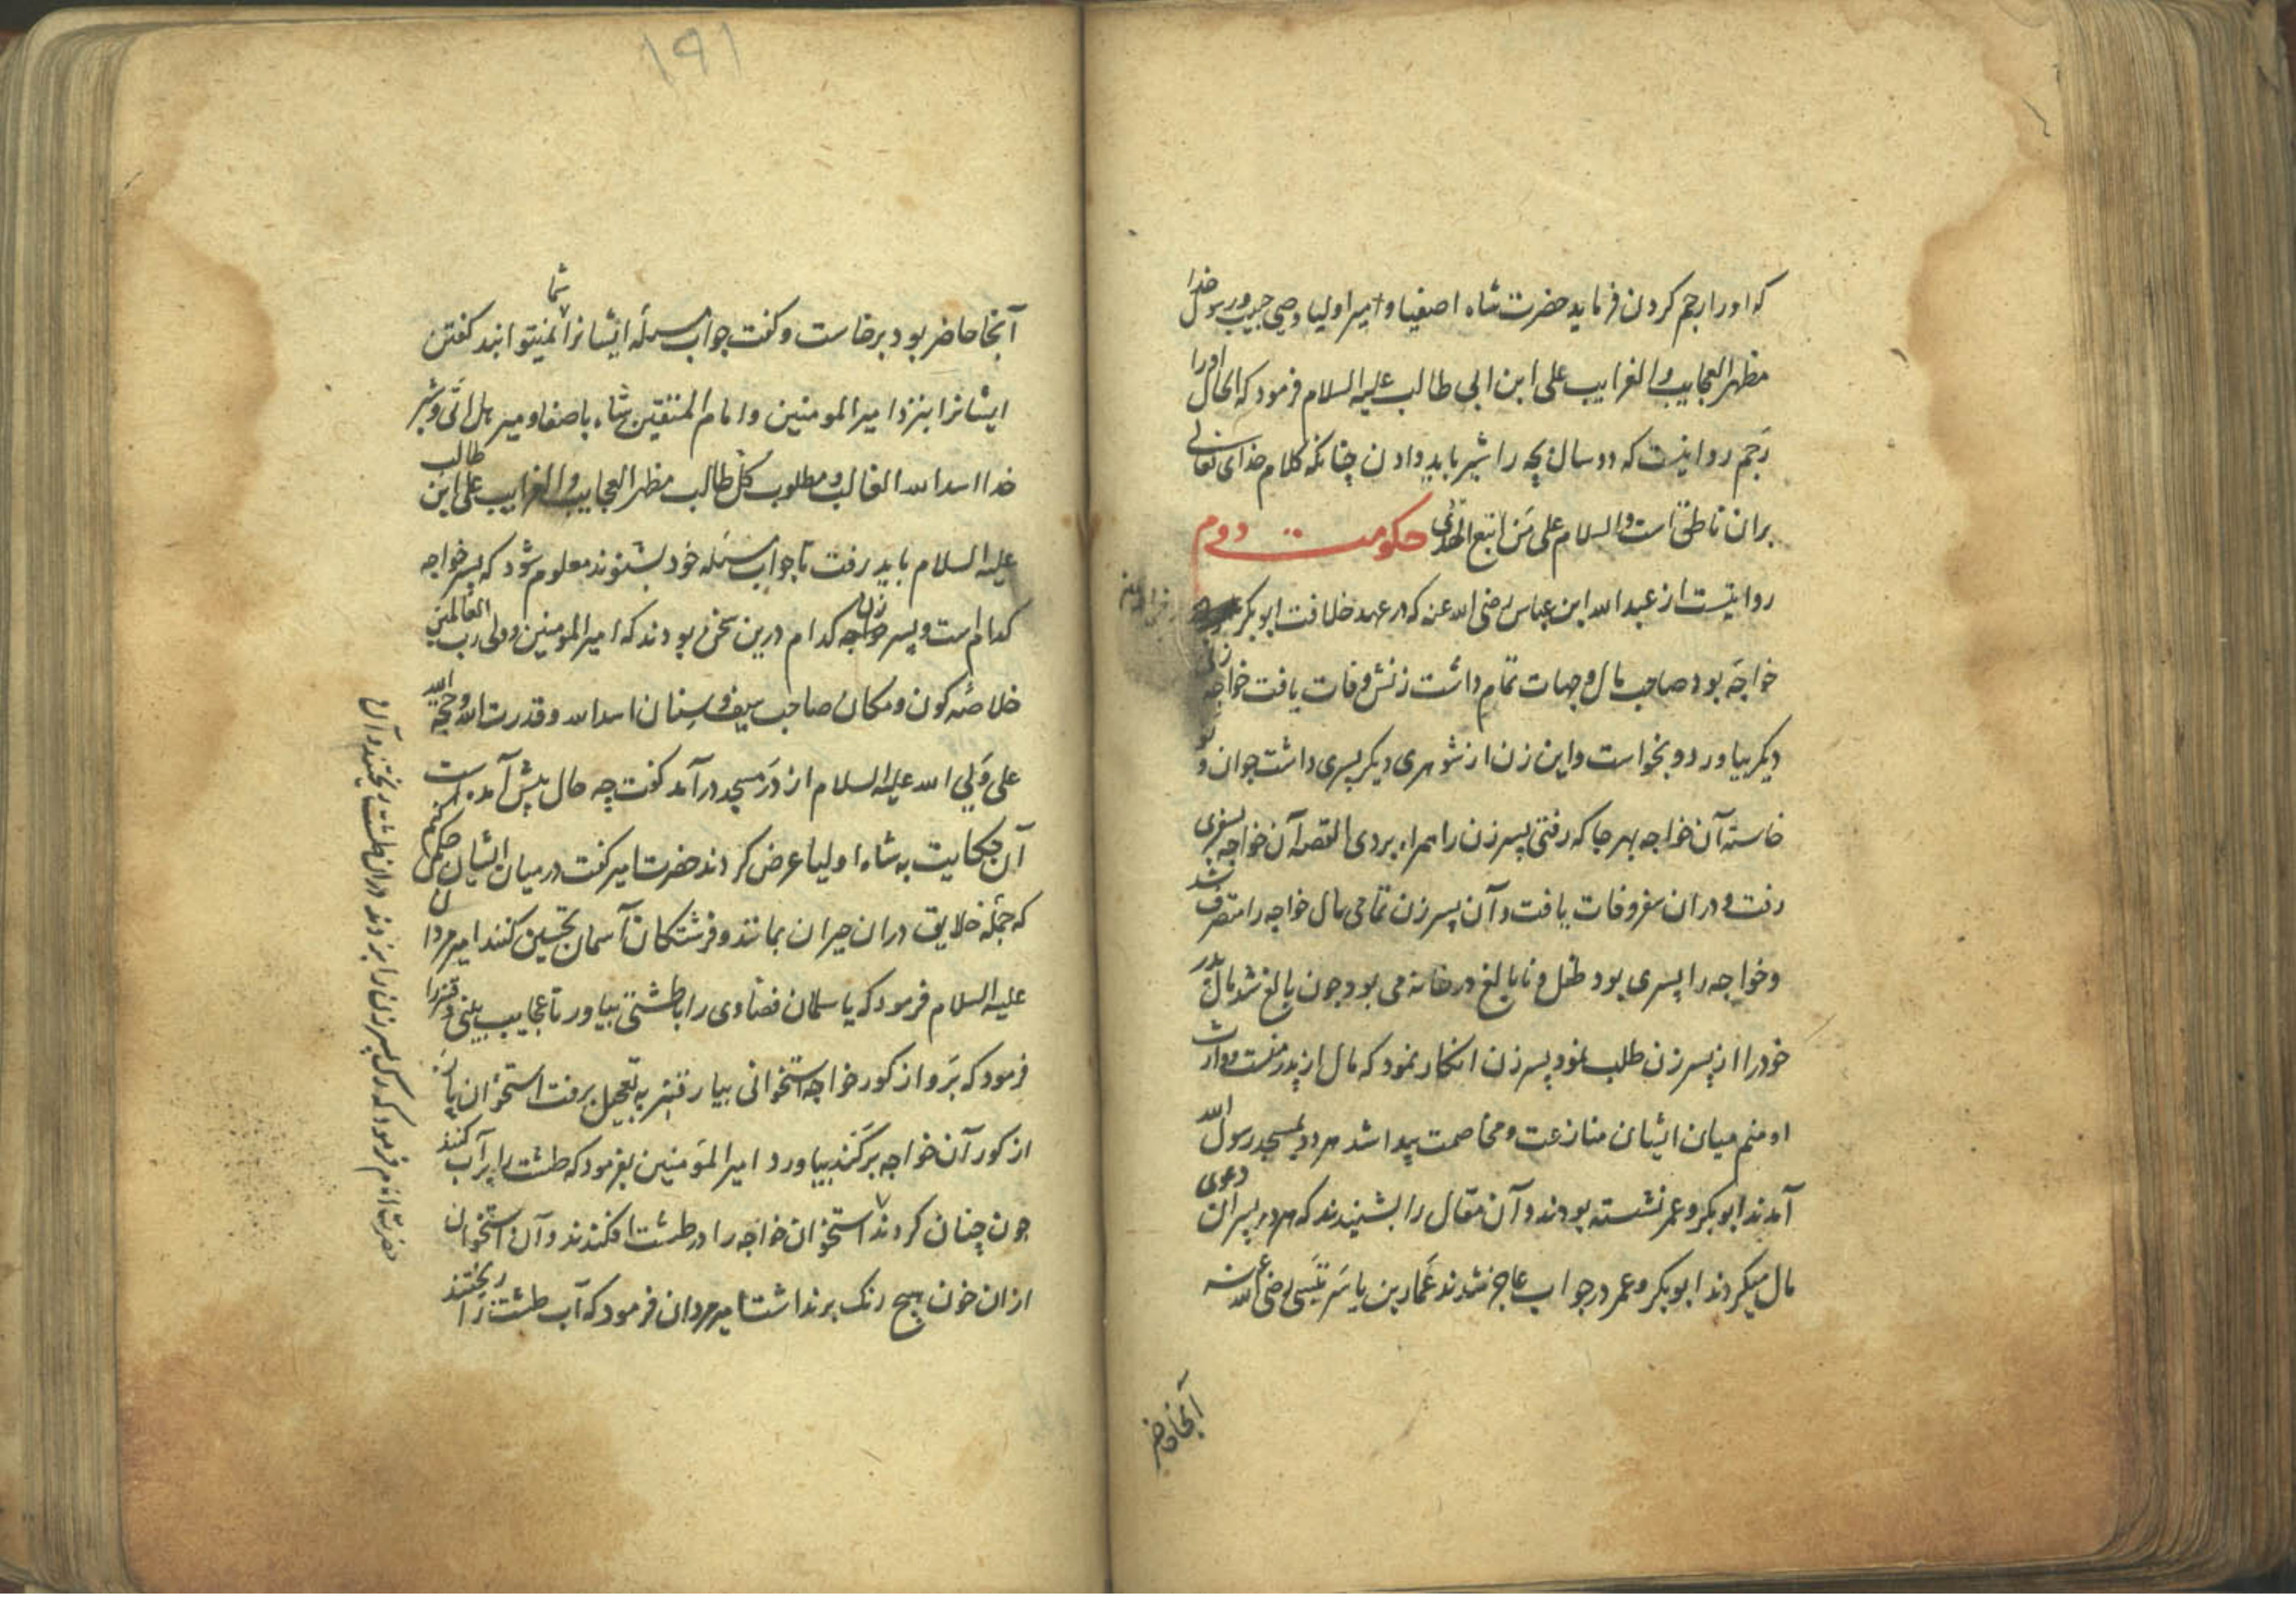 که اورا رجم کردن فرماید حضرت شاه اصفیا و امیر اولیا وصی حبیب و رسول خدا
مظهر العجایب والغرایب علی ابن ابی طالب علیه السلام فرمود که الحال اورا
رجم روا نیست که دو سال بچه را شیر باید دادن چنانکه کلام خدای تعالی
بران ناطق است والسلام علی من اتبع الهدی حکومت دوم
روایتست از عبد الله ابن عباس رضی الله عنه که در عهد خلافت ابوبکر
خواجه بود صاحب مال و جهات تمام داشت زنش وفات یافت خواجه زن
دیکر بیاورد و بخواست واین زن از شوهری دیکر پسری داشت جوان و نو
خاسته آن خواجه بهر جا که رفتی پسر زن را همراه بردی القصه آن خواجه بسفری
رفت و دران سفر وفات یافت و آن پسر زن تمامی مال خواجه را متصرف شد
وخواجه را پسری بود طفل و نابالغ در خانه می بود جون بالغ شد مال پدر
خود را از پسر زن طلب نمود پسر زن انکار نمود که مال از پدر منست و وارث
او منم میان ایشان منازعت و مخاصمت پیدا شد هر دو بمسجد رسول الله
آمدند ابوبکر و عمر نشسته بودند و آن مقال را بشنیدند که هر دو پسر ان دعوی
مال میکردند ابوبکر وعمر در جواب عاجز شدند عمار بن یاسر رضی الله عنه
آنجا حاضر
۱۹۱
آنجا حاضر بود برخاست و کفت جواب مسئله ایشانرا شما نمیتوانید کفتن
ایشانرا بنزد امیر المومنین و امام المتقین شاه با صفا و میر هل اتی و شیر
خدا اسد الله الغالب و مطلوب کل طالب مظهر العجایب والغرایب علی ابن طالب
علیه السلام باید رفت تا جواب مسئله خود بشنوند معلوم شود که پسر خواجه
کدام است و پسر زن خواجه کدام درین سخن بودند که امیر المومنین و ولی رب العالمین
خلاصه کون و مکان صاحب سیف و سنان اسد الله و قدرت الله و حجة الله
علی ولی الله علیه السلام از در مسجد درآمد کفت چه حال پیش آمده است
آن حکایت به شاه اولیا عرض کردند حضرت امیر کفت در میان ایشان حکمی کنم
که جمله خلایق دران حیران بمانند و فرشتکان آسمان تحسین کنند امیر مردان
علیه السلام فرمود که یا سلمان فصادی را با طشتی بیاور تا عجایب بینی و قنبر را
فرمود که برو از کور خواجه استخوانی بیار قنبر به تعجیل برفت استخوان پاره
از کور آن خواجه برکند بیاورد امیر المومنین بفرمود که طشت را پر آب کنید
جون چنان کردند استخوان خواجه را در طشت افکندند و آن استخوان
ازان خون هیچ رنک برنداشت امیر مردان فرمود که آب طشت را ریختند
حضرت امام فرمود که رک پسر زن را بزدند دران طشت ریختند و آن